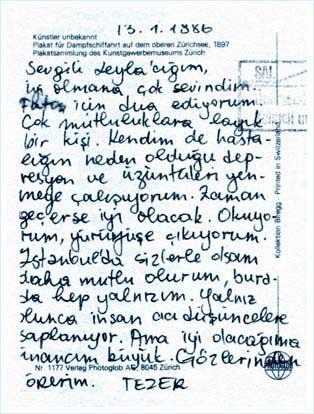 13.1.1986
Künstler unbekannt
Plakat für Dampfschiffahrt auf dem oberen Zürichsee, 1897
Plakatsammlung des Kunstgewerbemuseums Zürich
Sevgili Leyla'cığım,
iyi olmana çok sevindim.
için dua ediyorum
Çok mutluluklara layık
bir kişi. Kendim de hasta-
lığın neden olduğu dep-
resyon ve üzüntüleri yen-
meğe çalışıyorum. Zaman
geçerse iyi olacak. Okuyo-
rum, yürüyüşe çıkıyorum.
İstanbul'da sizlerle olsam
daha mutlu olurum, bura-
da hep yalnızım. Yalnız
olunca insan acı düşüncelere
saplanıyor. Ama iyi olacağıma
inancım büyük. Gözlerinden
öperim. TEZER
Nr. 1177 Verlag Photoglob AG, 8045 Zürich
Kollektion Brügg - Printed in Switzerland